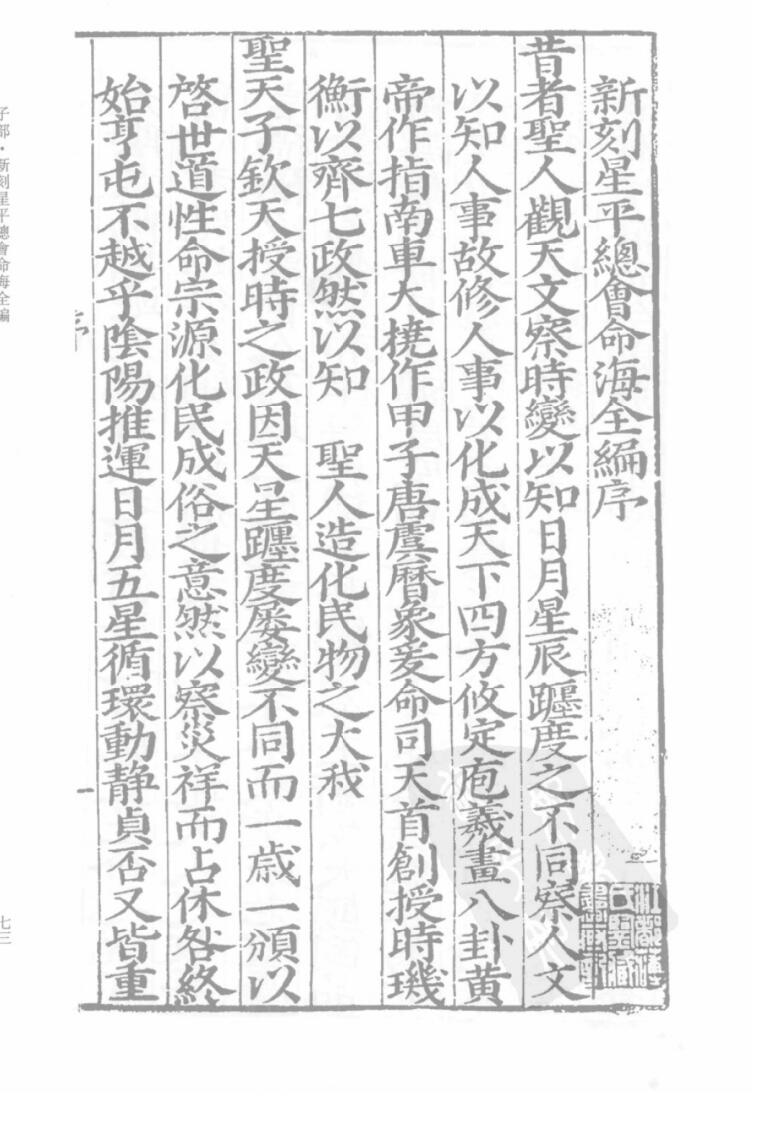 新刻星平總會命海全編序
昔者聖人觀天文察時變以知日月星辰躔度之不同察人文
以知人事故修人事以化成天下四方攸定庖羲畫八卦黃
帝作指南車大撓作甲子唐虞曆象爰命司天首創授時璣
衡以齊七政然以知　聖人造化民物之大我
聖天子欽天授時之政因天星躔度屡變不同而一歲一頒以
啓世道性命宗源化民成俗之意然以察災祥而占休咎終
始亨屯不越乎陰陽推運日月五星循環動静貞否又皆重
序
一
子部·新刻星平總會命海全編
七三